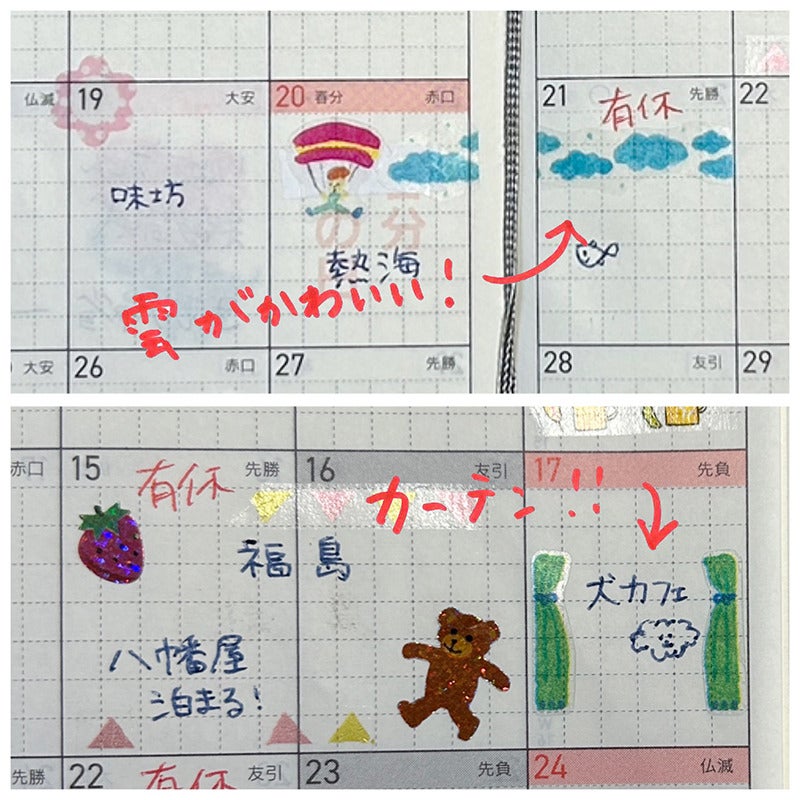 仏滅 19 大安 20 春分 赤口
21 有休 先勝 22
味坊
熱海
雲がかわいい!
大安 26 赤口 27 先勝
28 友引 29
赤口 15 有休 先勝 16 友引 17 先負
カーテン!!
福島
犬カフェ
八幡屋
泊まる!
先勝 22 有休 友引 23 先負 24 仏滅